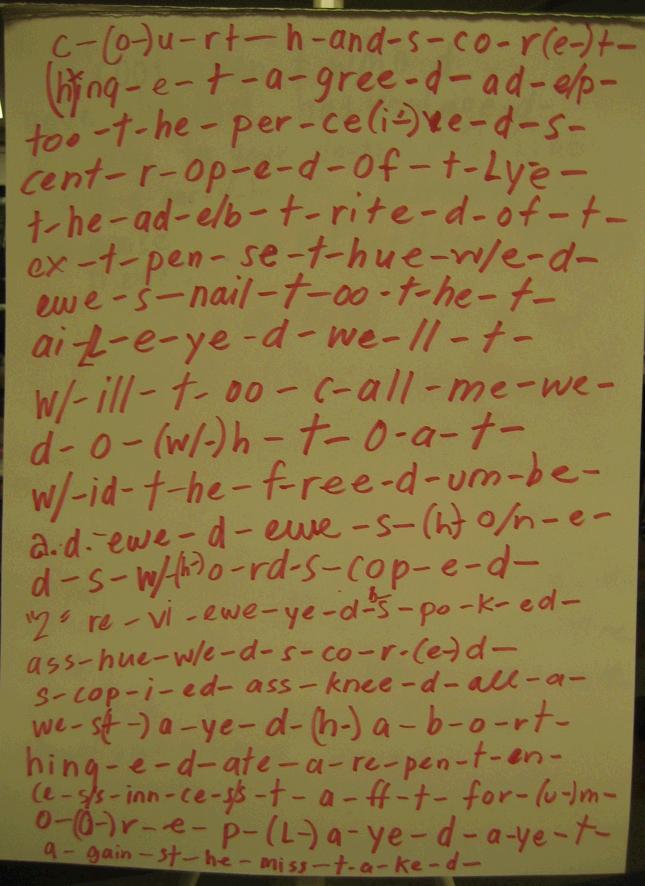 c-(o-)u-rt-h-and-s-co-r(e-)t-
(h)ing-e-t-a-gree-d-ad-e/p-
too-t-he-per-ce(i-)ve-d-s-
cent-r-op-e-d-of-t-Lye-
t-he-ad-e/b-t-rite-d-of-t-
ex-t-pen-se-t-hue-w/e-d-
ewe-s-nail-t-oo-t-he-t-
ai-L-e-ye-d-we-ll-t-
w/-ill-t-oo-c-all-me-we-
d-o-(w/-)h-t-o-a-t-
w/-id-t-he-f-ree-d-um-be-
a.d.-ewe-d-ewe-s-(h-)o/n-e-
d-s-w/-(h-)o-rd-s-cop-e-d-
"2" re-vi-ewe-ye-d-s-po-k-ed-
ass-hue-w/e-d-s-co-r-(e-)d-
s-cop-i-ed-ass-knee-d-all-a-
we-s(t-)a-ye-d-(h-)a-b-o-rt-
hing-e-d-ate-a-re-pen-t-en-
ce-s/s-inn-ce-s/s-t-a-ff-t-for-(u-)m-
o-(o-)r-e-p-(L-)a-ye-d-a-ye-t-
a-gain-st-he-miss-t-a-ke-d-